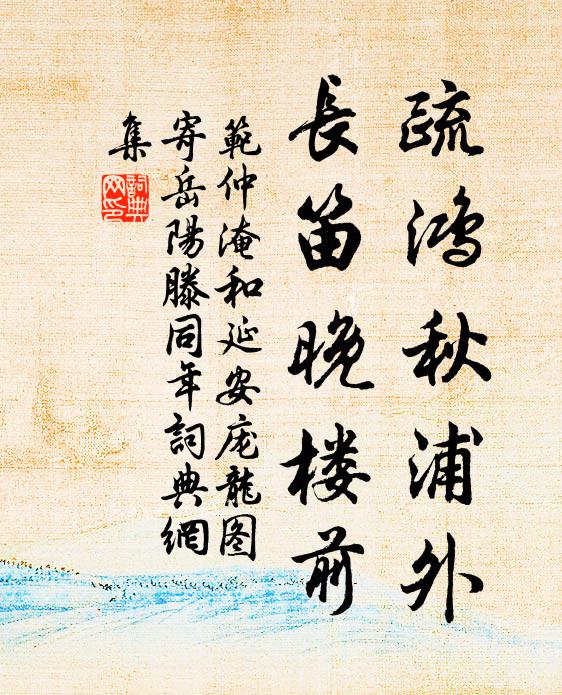 疏鸿秋浦外
長笛晚楼前
範仲淹和延安庞龍图
寄岳陽滕同年詞典網
集
詞典
网印